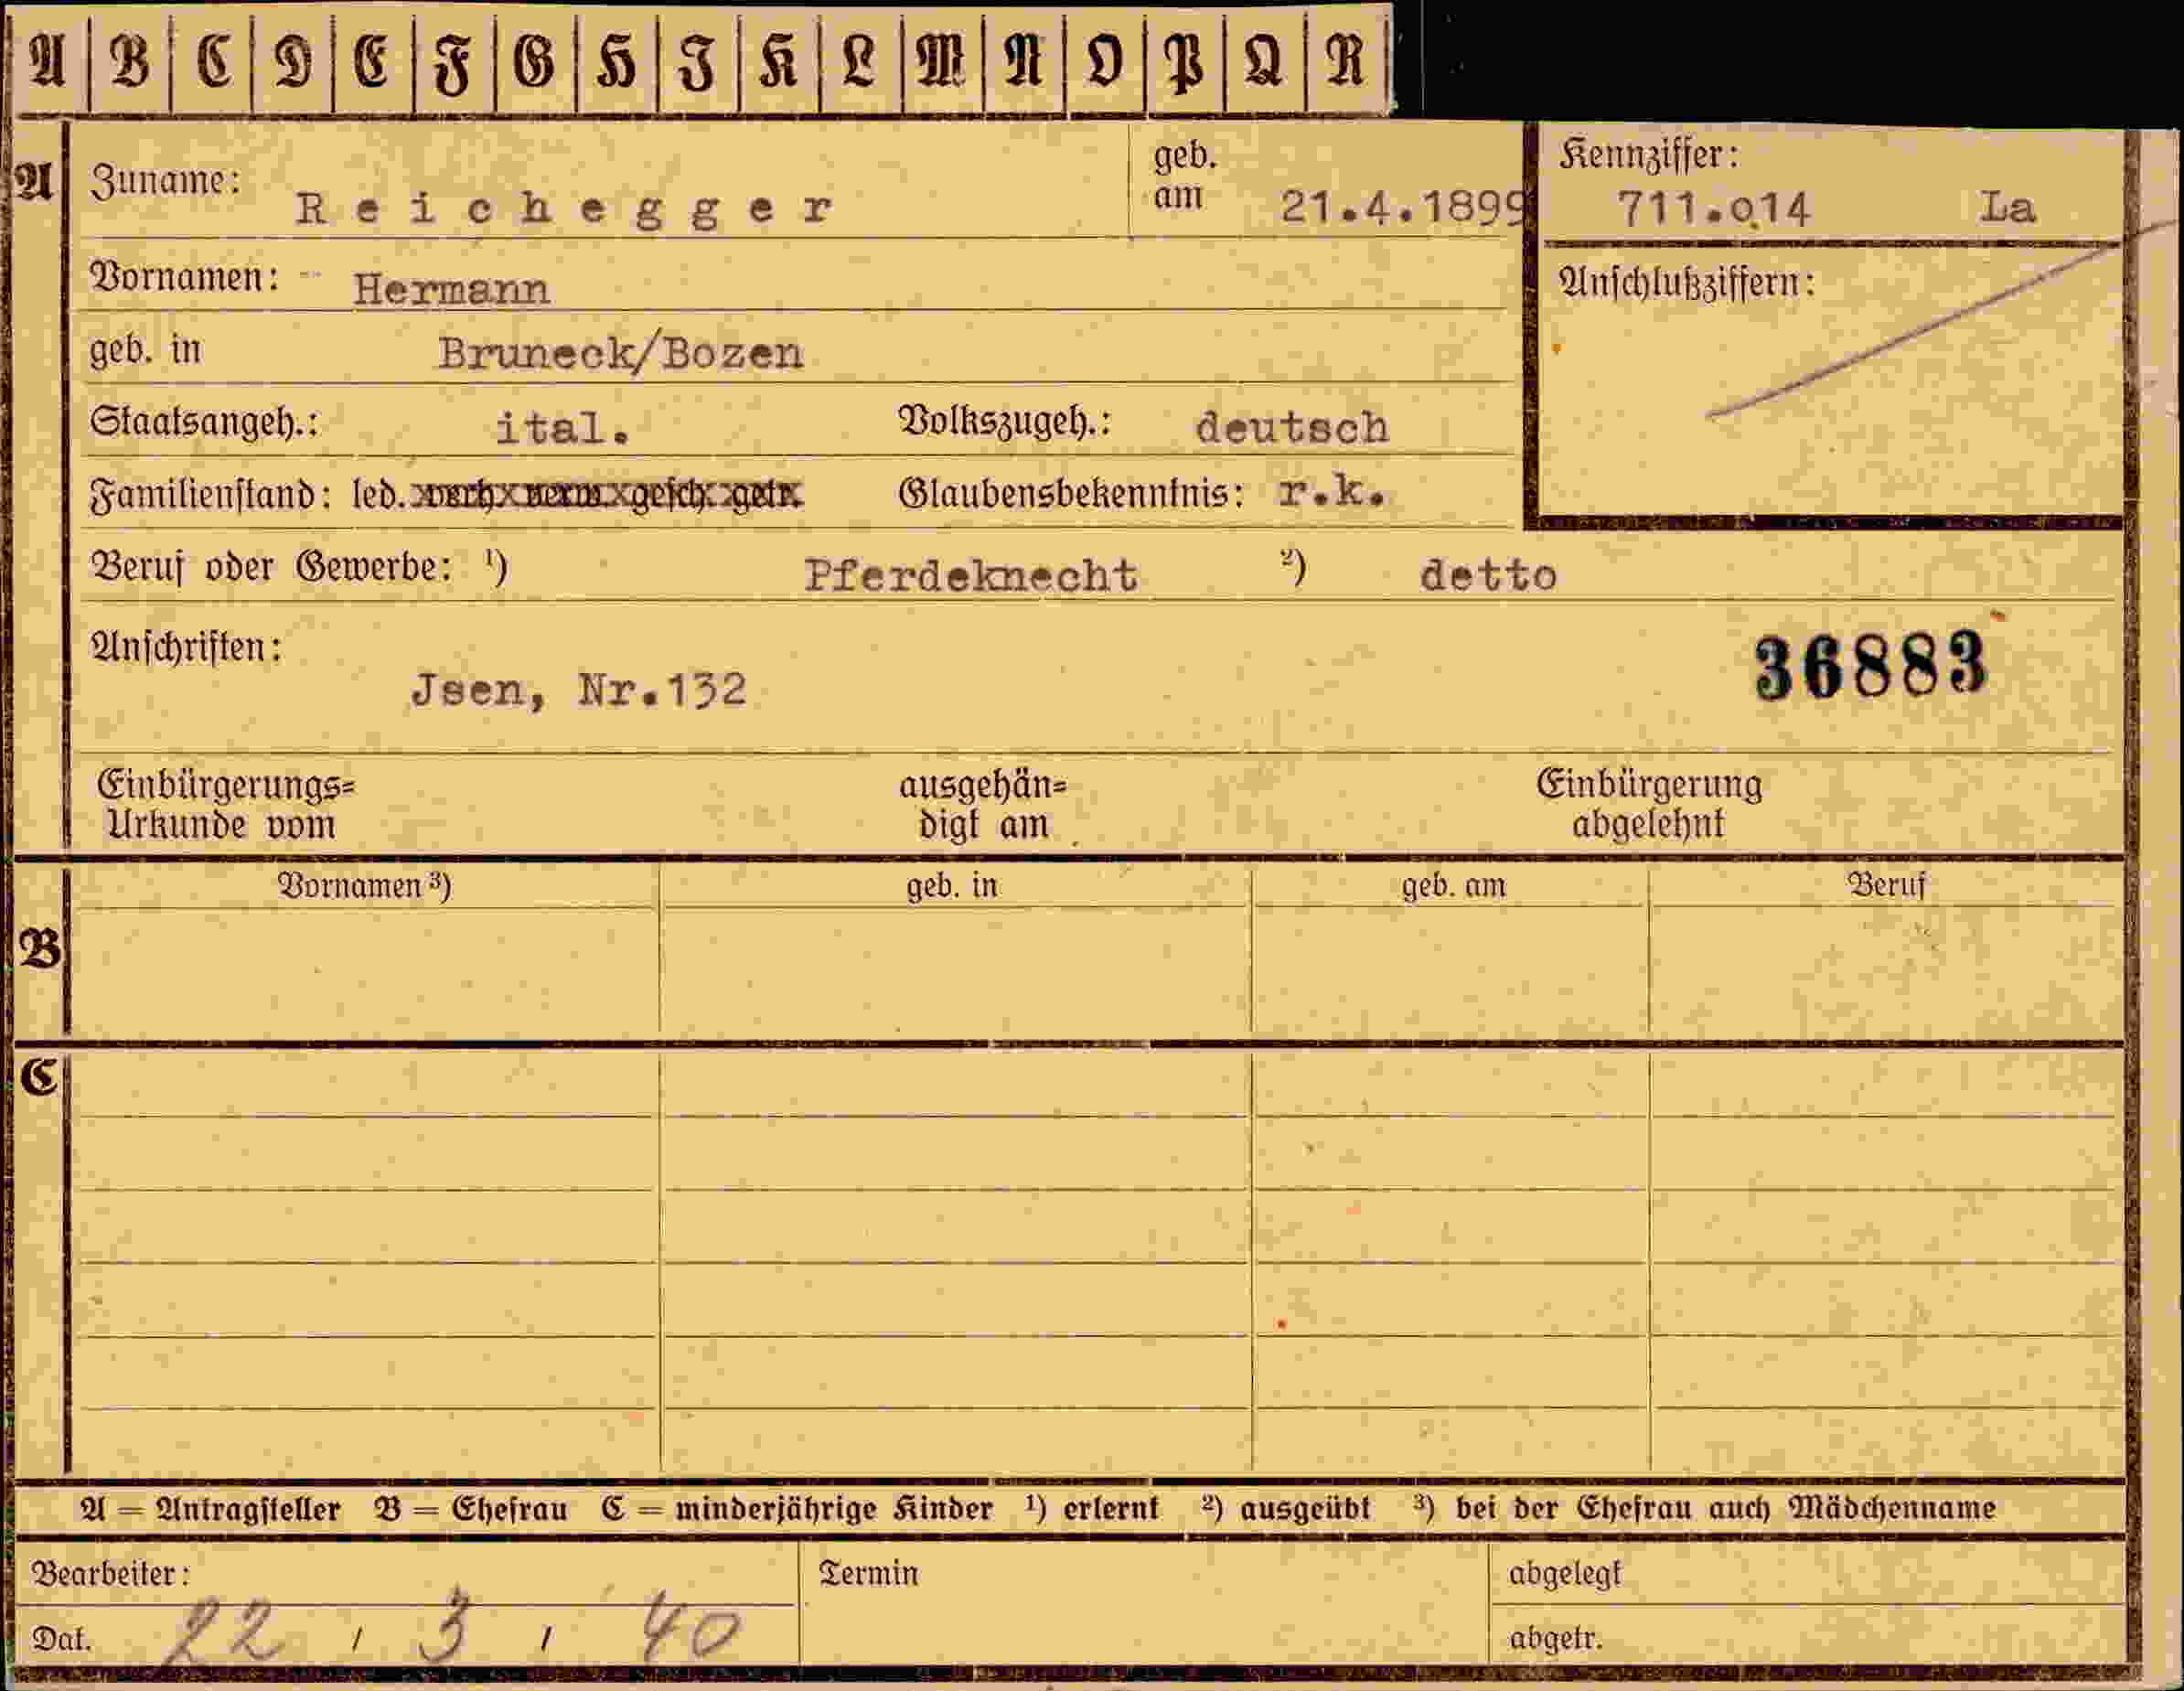 A B C D E F G H I K L M N O P Q R
A Zuname: Reichegger geb. am 21.4.1899 Kennziffer: 711.014 La
Vornamen: Hermann Anschlußziffern:
geb. in Bruneck/Bozen
Staatsangeh.: ital. Volkszugeh.: deutsch
Familienstand: led. verh. verw. gesch. getr. Glaubensbekenntnis: r.k.
Beruf oder Gewerbe: ¹) Pferdeknecht ²) detto
Anschriften: 36883
Jsen, Nr.132
Einbürgerungs= ausgehän= Einbürgerung
Urkunde vom digt am abgelehnt
Vornamen ³) geb. in geb. am Beruf
B
C
A = Antragsteller B = Ehefrau C = minderjährige Kinder ¹) erlernt ²) ausgeübt ³) bei der Ehefrau auch Mädchenname
Bearbeiter: Termin abgelegt
Dat. 22 / 3 / 40 abgetr.